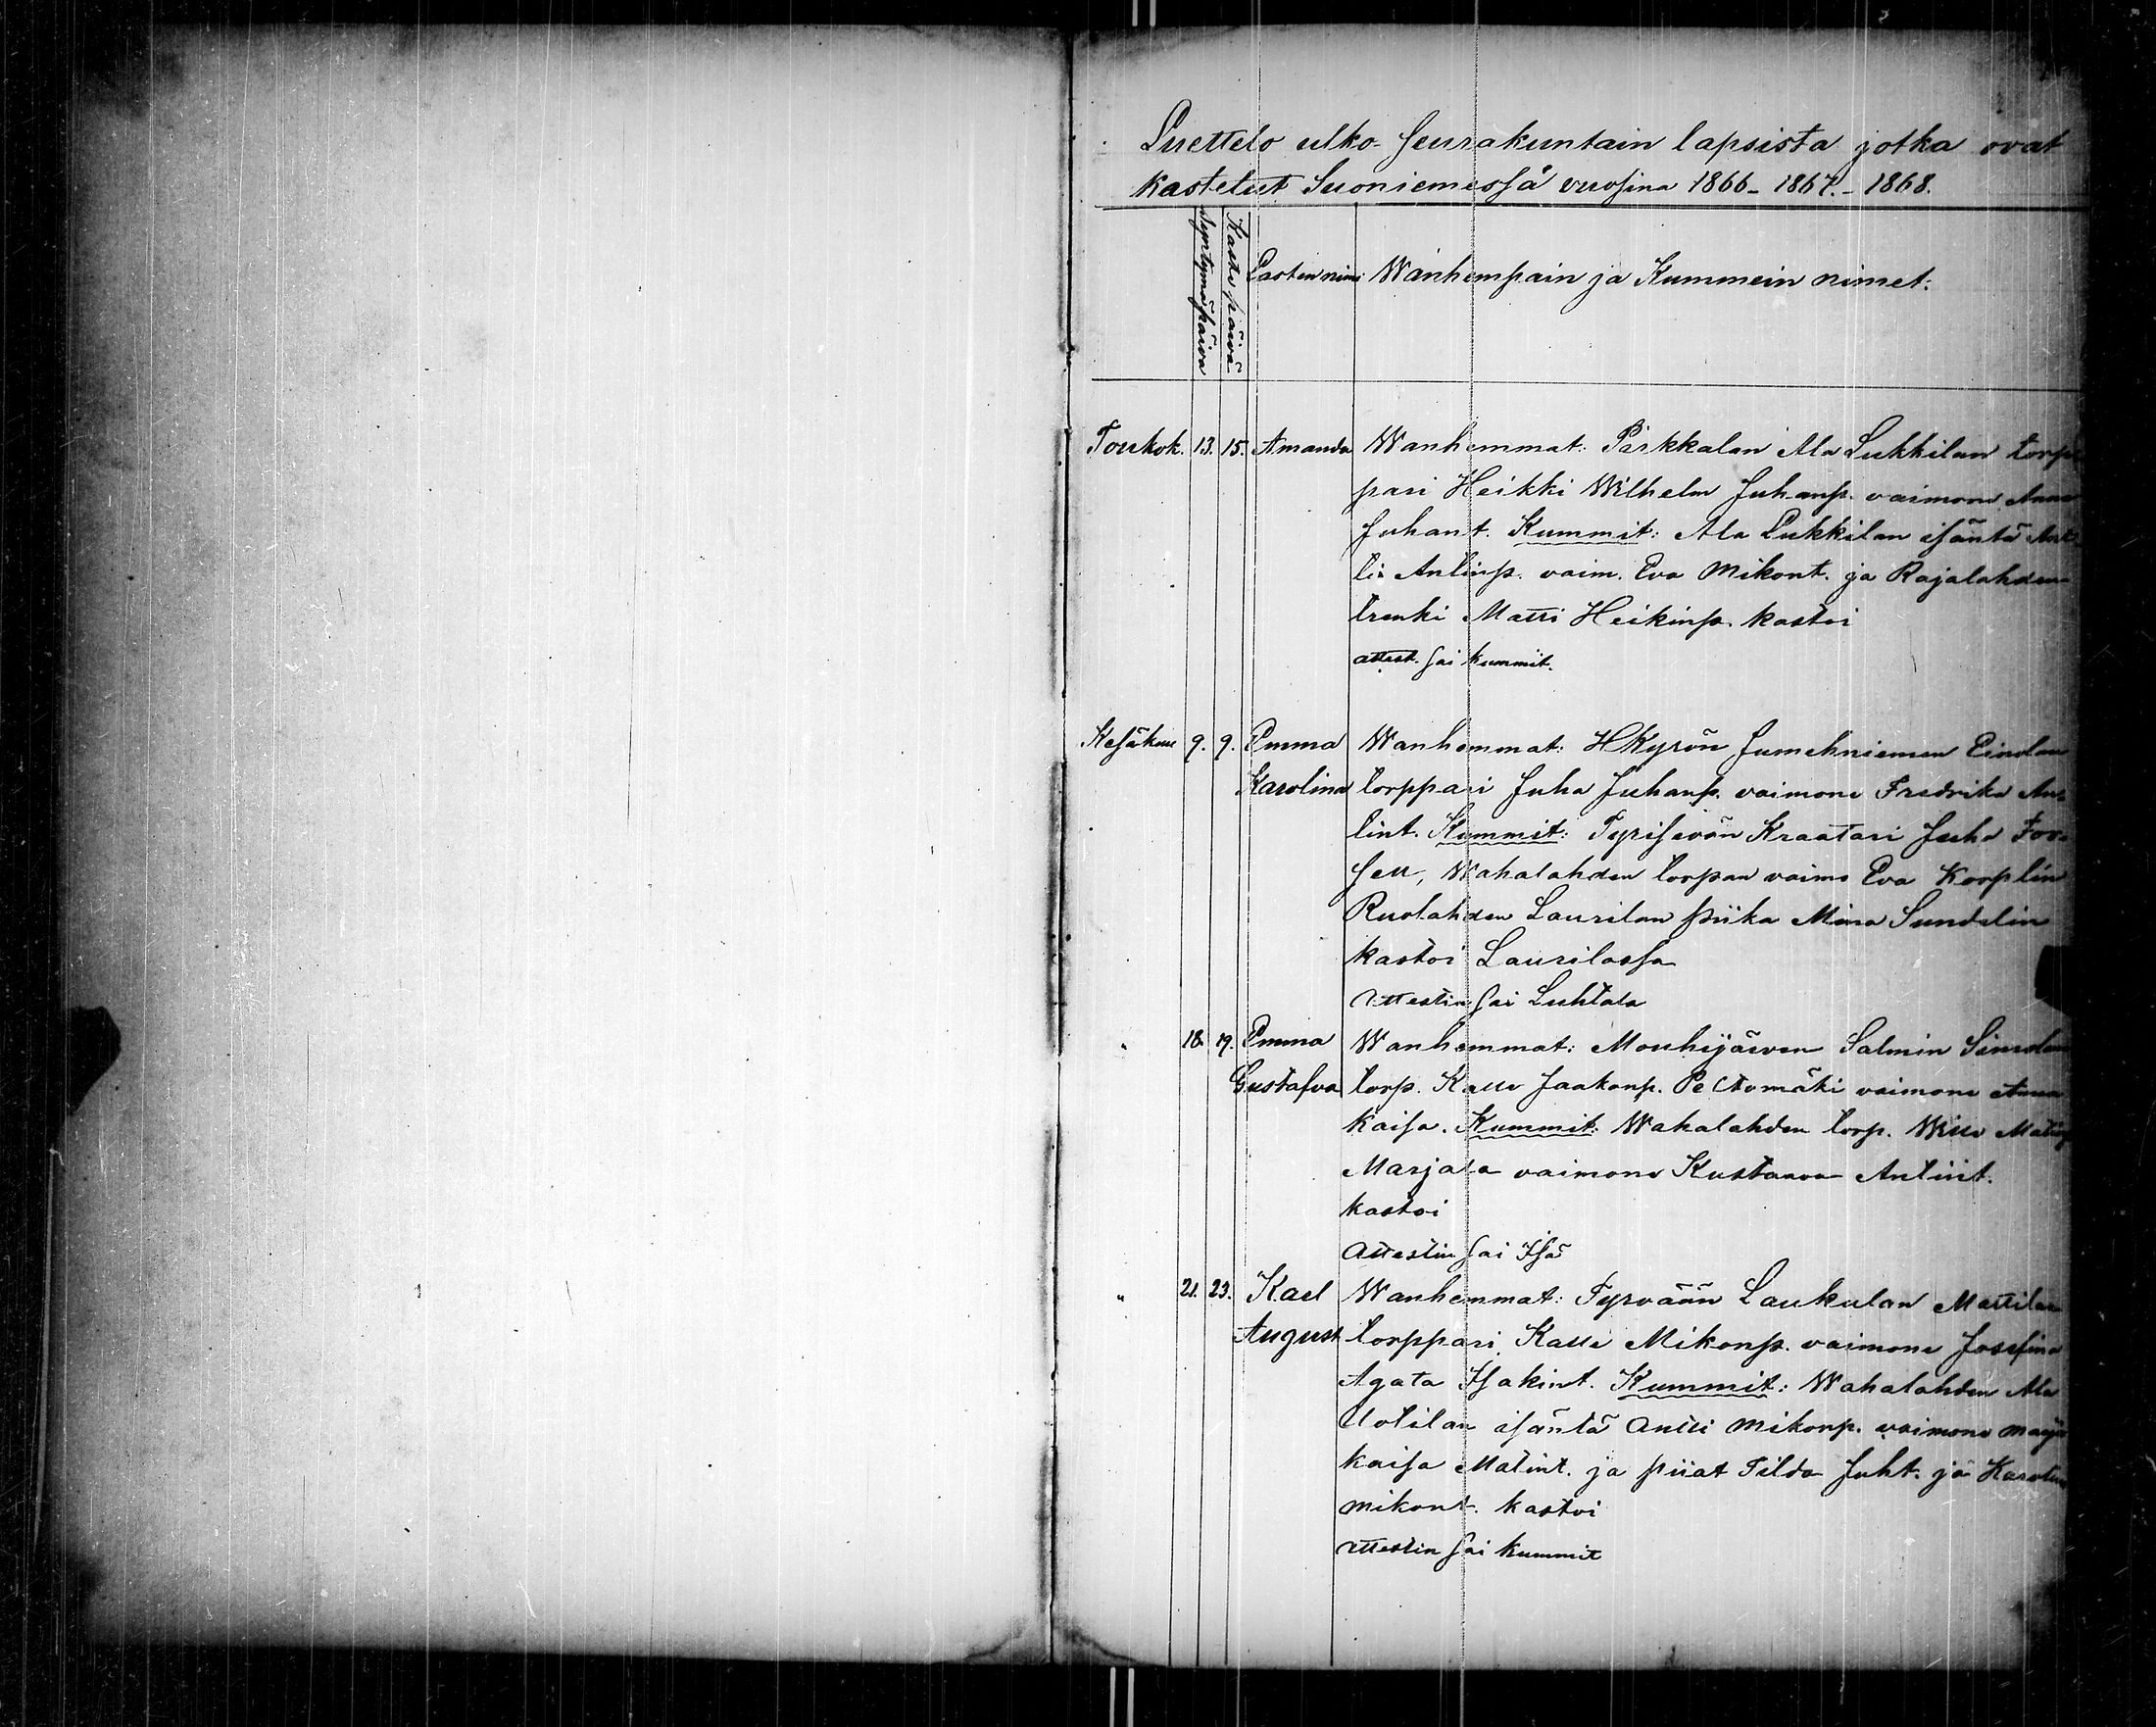 Luettelo ulko-seurakuntain lapsista jotka ovat
kastetut Suoniemessä vuosina 1866-1867.-1868.
Syntymäpäivä
Kaste päivä
Lasten nimi Wanhempain ja Kummein nimet:
Toukok. 13. 15. Amanda Wanhemmat: Pirkkalan Ala Lukkilan torp
pari Heikki Wilhelm Juhanp. vaimons Anna
Juhant. Kummit: Ala Lukkilan isäntä Ant
ti Antinp. vaim. Eva Mikont. ja Rajalahden
trenki Matti Heikinp. kastoi
attest. sai kummit.
Kesäkuu 9. 9. Emma Wanhemmat: HKyrön Jumehniemen
Karolina torppari Juha Juhanp. vaimons Fredrika An-
tint. Kummit: Tyrisevän Kraatari Juha
Wahalahden torpan vaimo Eva Korplin
Ruolahden Laurilan piika Mina Sundelin
kastoi Laurilassa
attestin sai Luhtala
" 18. 19. Emma Wanhemmat: Mouhijärven Salmin Simolan
Gustafva torp. Kalle Jaakonp. Peltomäki vaimons Anna
Kaisa. Kummit: Wahalahden torp. Wille Matinp
Marjala vaimons Kustaava Antint.
kastoi
Attestin sai Isä
" 21. 23. Kael Wanhemmat: Tyrvään Laukulan Mattilan
August torppari Kalle Mikonp. vaimons Josefina
Agata Isakint. Kummit: Wahalahden Ala
Uotilan isäntä Antti Mikonp. vaimons Marja
kaisa Matint. ja piiat Tilda Juht. ja Karolina
Mikont. kastoi
attestin sai kummit